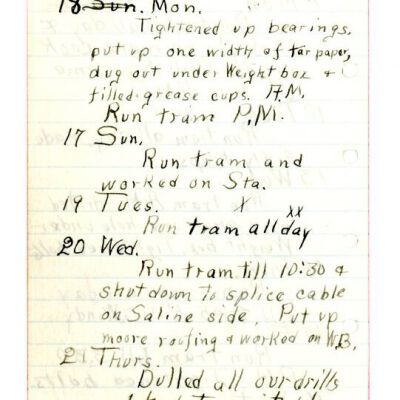 18 Sun. Mon.
Tightened up bearings,
put up one width of tar paper,
dug out under Weight box &
filled grease cups. A.M.
Run tram P.M.
17 Sun.
Run tram and
worked on Sta.
19 Tues. X XX
Run tram all day
20 Wed.
Run tram till 10:30 &
shut down to splice cable
on Saline side. Put up
moore roofing & worked on W.B.
2 Thurs.
Dulled all our drills